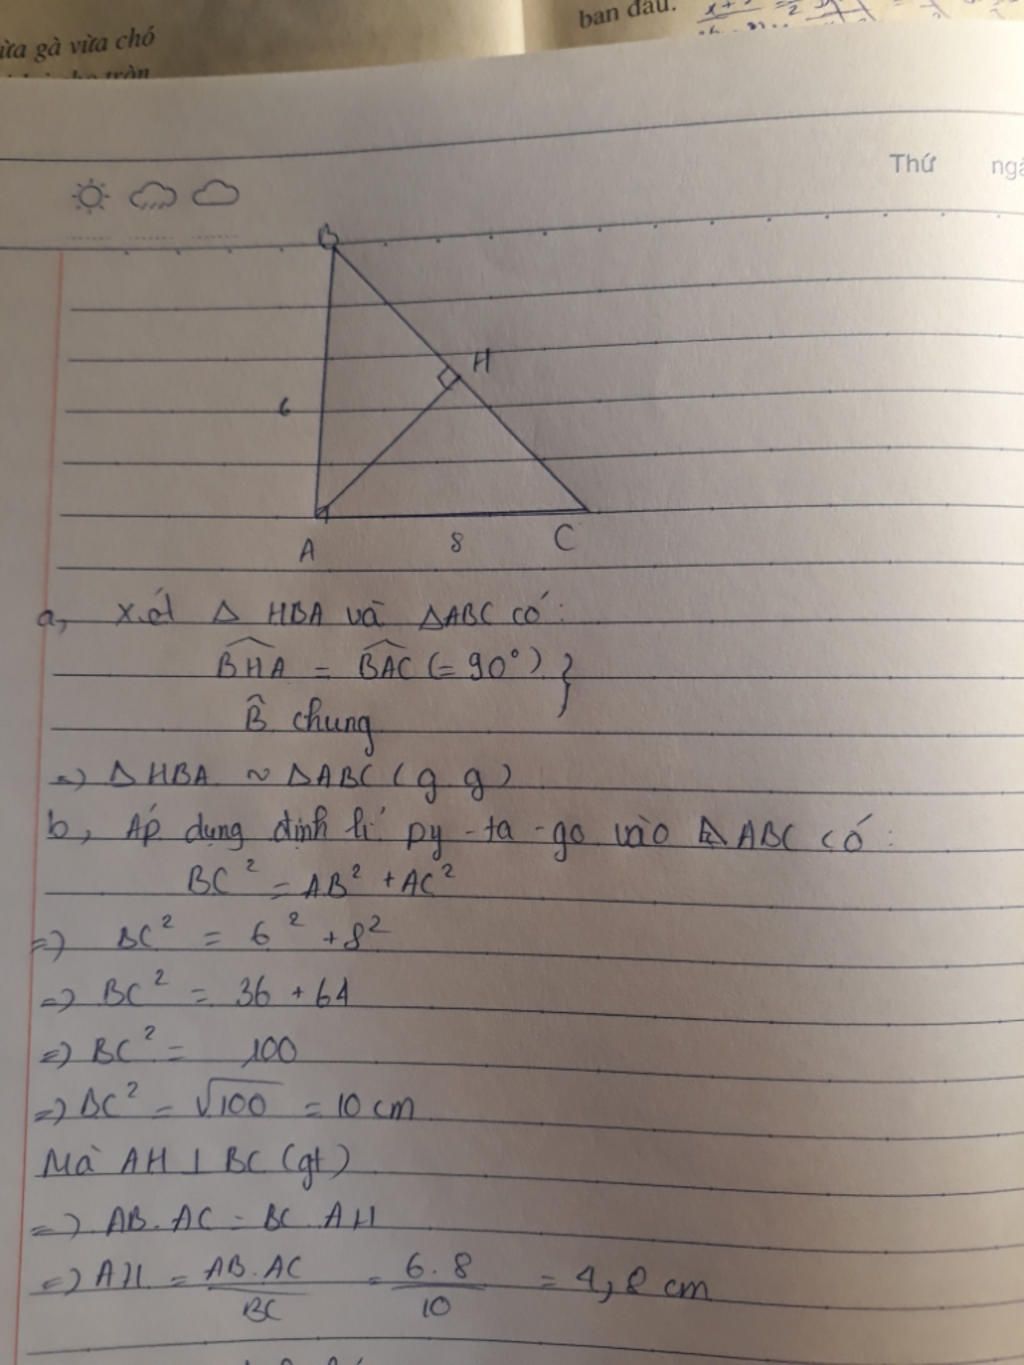 ừa gà vừa chó
ban đầu.
Thứ
B
H
6
A
8
C
a, Xét Δ HBA và ΔABC có:
BHA = BAC (= 90°) }
B̂ chung
=> Δ HBA ~ ΔABC (g g)
b, Áp dụng định lí py-ta-go vào ΔABC có:
BC² = AB² + AC²
=> BC² = 6² + 8²
=> BC² = 36 + 64
=> BC² = 100
=> BC² = √100 = 10 cm
Mà AH ⊥ BC (gt)
=> AB. AC = BC. AH
=> AH = AB. AC / BC = 6. 8 / 10 = 4,8 cm